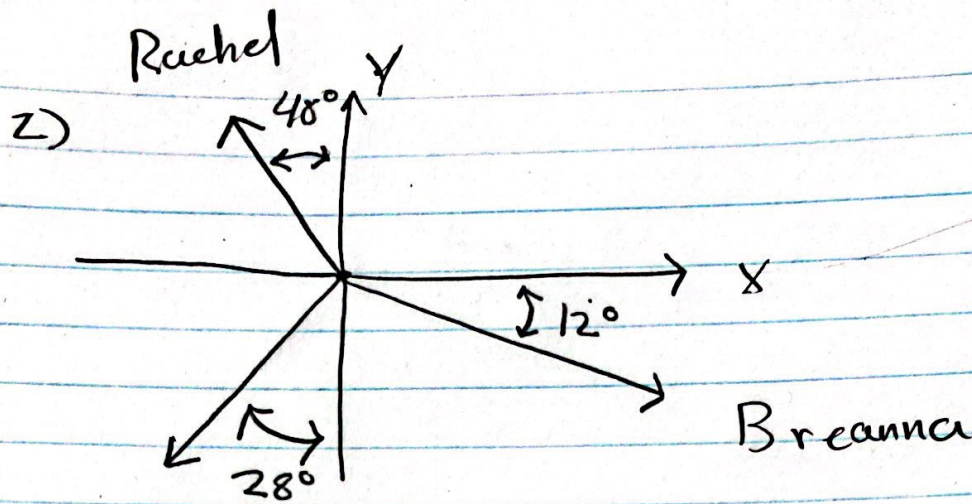 Rachel
Y
2)
40°
X
12°
Breanna
28°